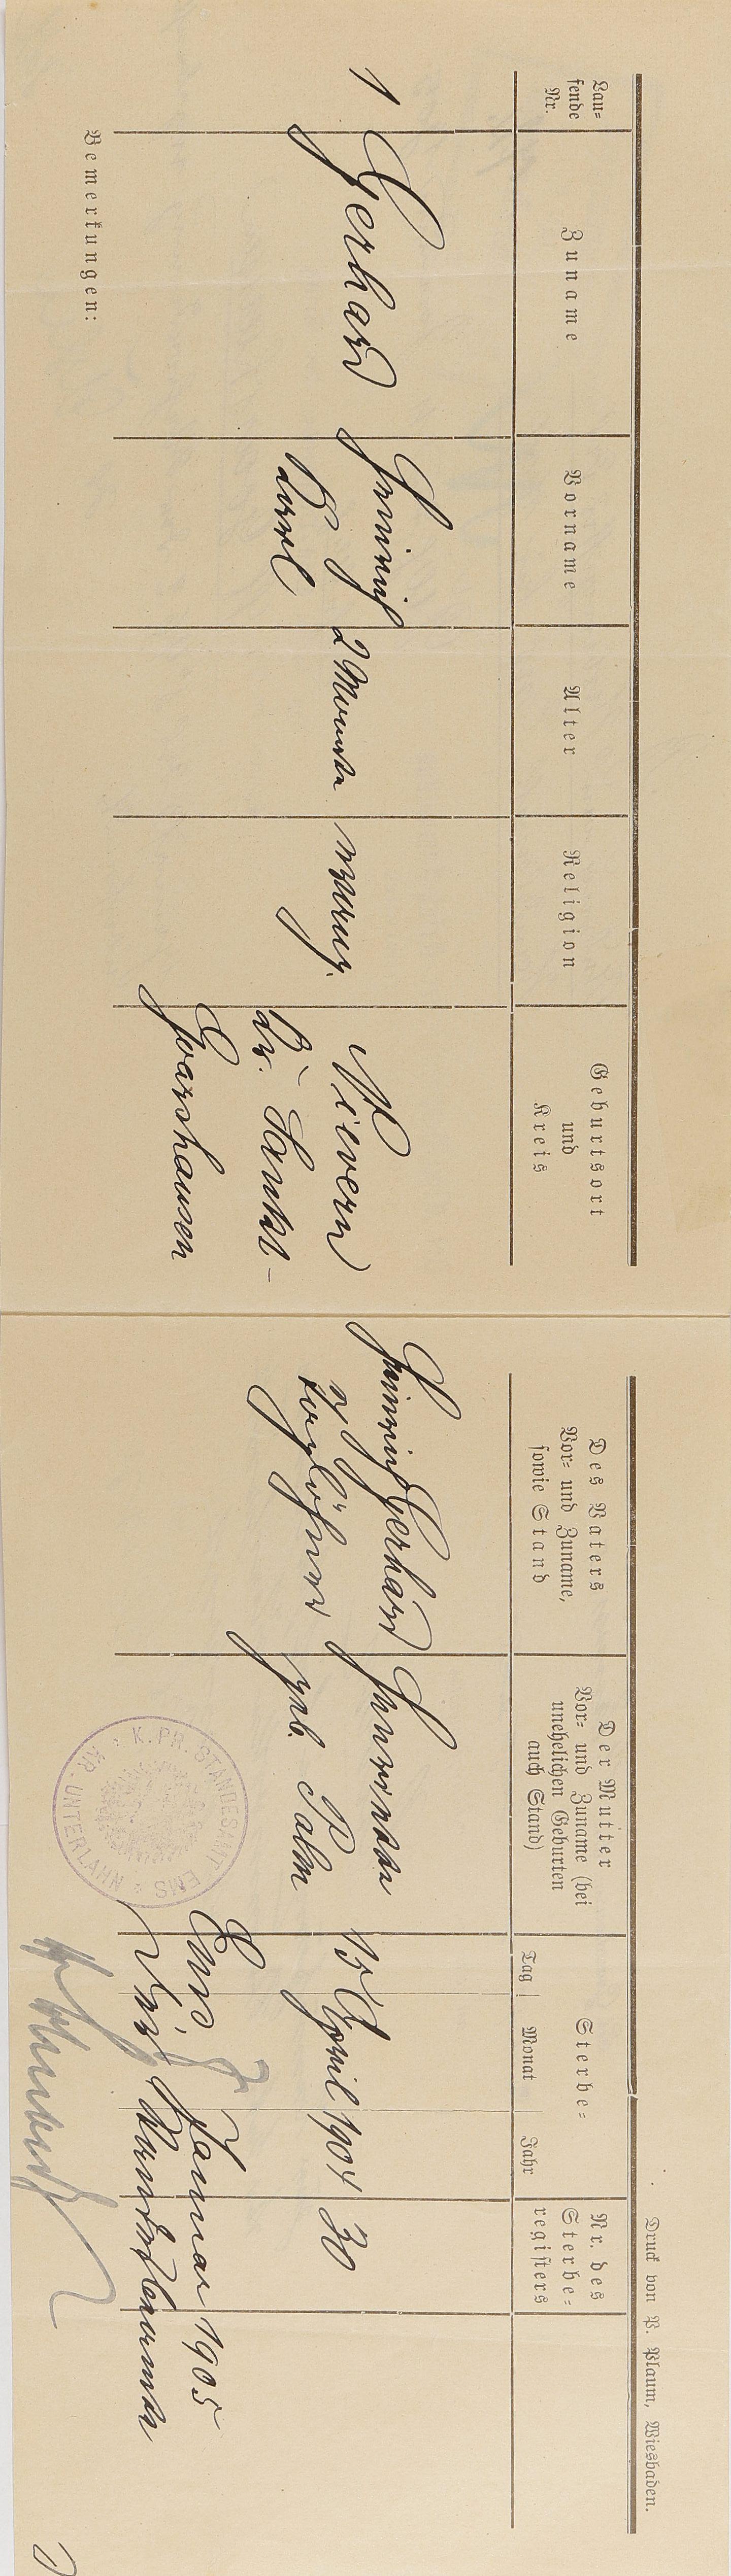 Druck von P. Plaum, Wiesbaden.
Lau=
fende
Nr.
Zuname
Vorname
Alter
Religion
Geburtsort
und
Kreis
Des Vaters
Vor= und Zuname,
sowie Stand
Der Mutter
Vor= und Zuname (bei
unehelichen Geburten
auch Stand)
Sterbe=
Tag
Monat
Jahr
Nr. des
Sterbe=
registers
1
Gerhard
Heinrich
Karl
2 Monate
evang.
Nievern
Kr. Sankt-
Goarshausen
Heinrich Gerhard
Taglöhner
Henriette
geb. Palm
15 April 1904
30
Bemerkungen:
Ems, Januar 1905
Der Standesbeamte
K. PR. STANDESAMT EMS
KR. UNTERLAHN